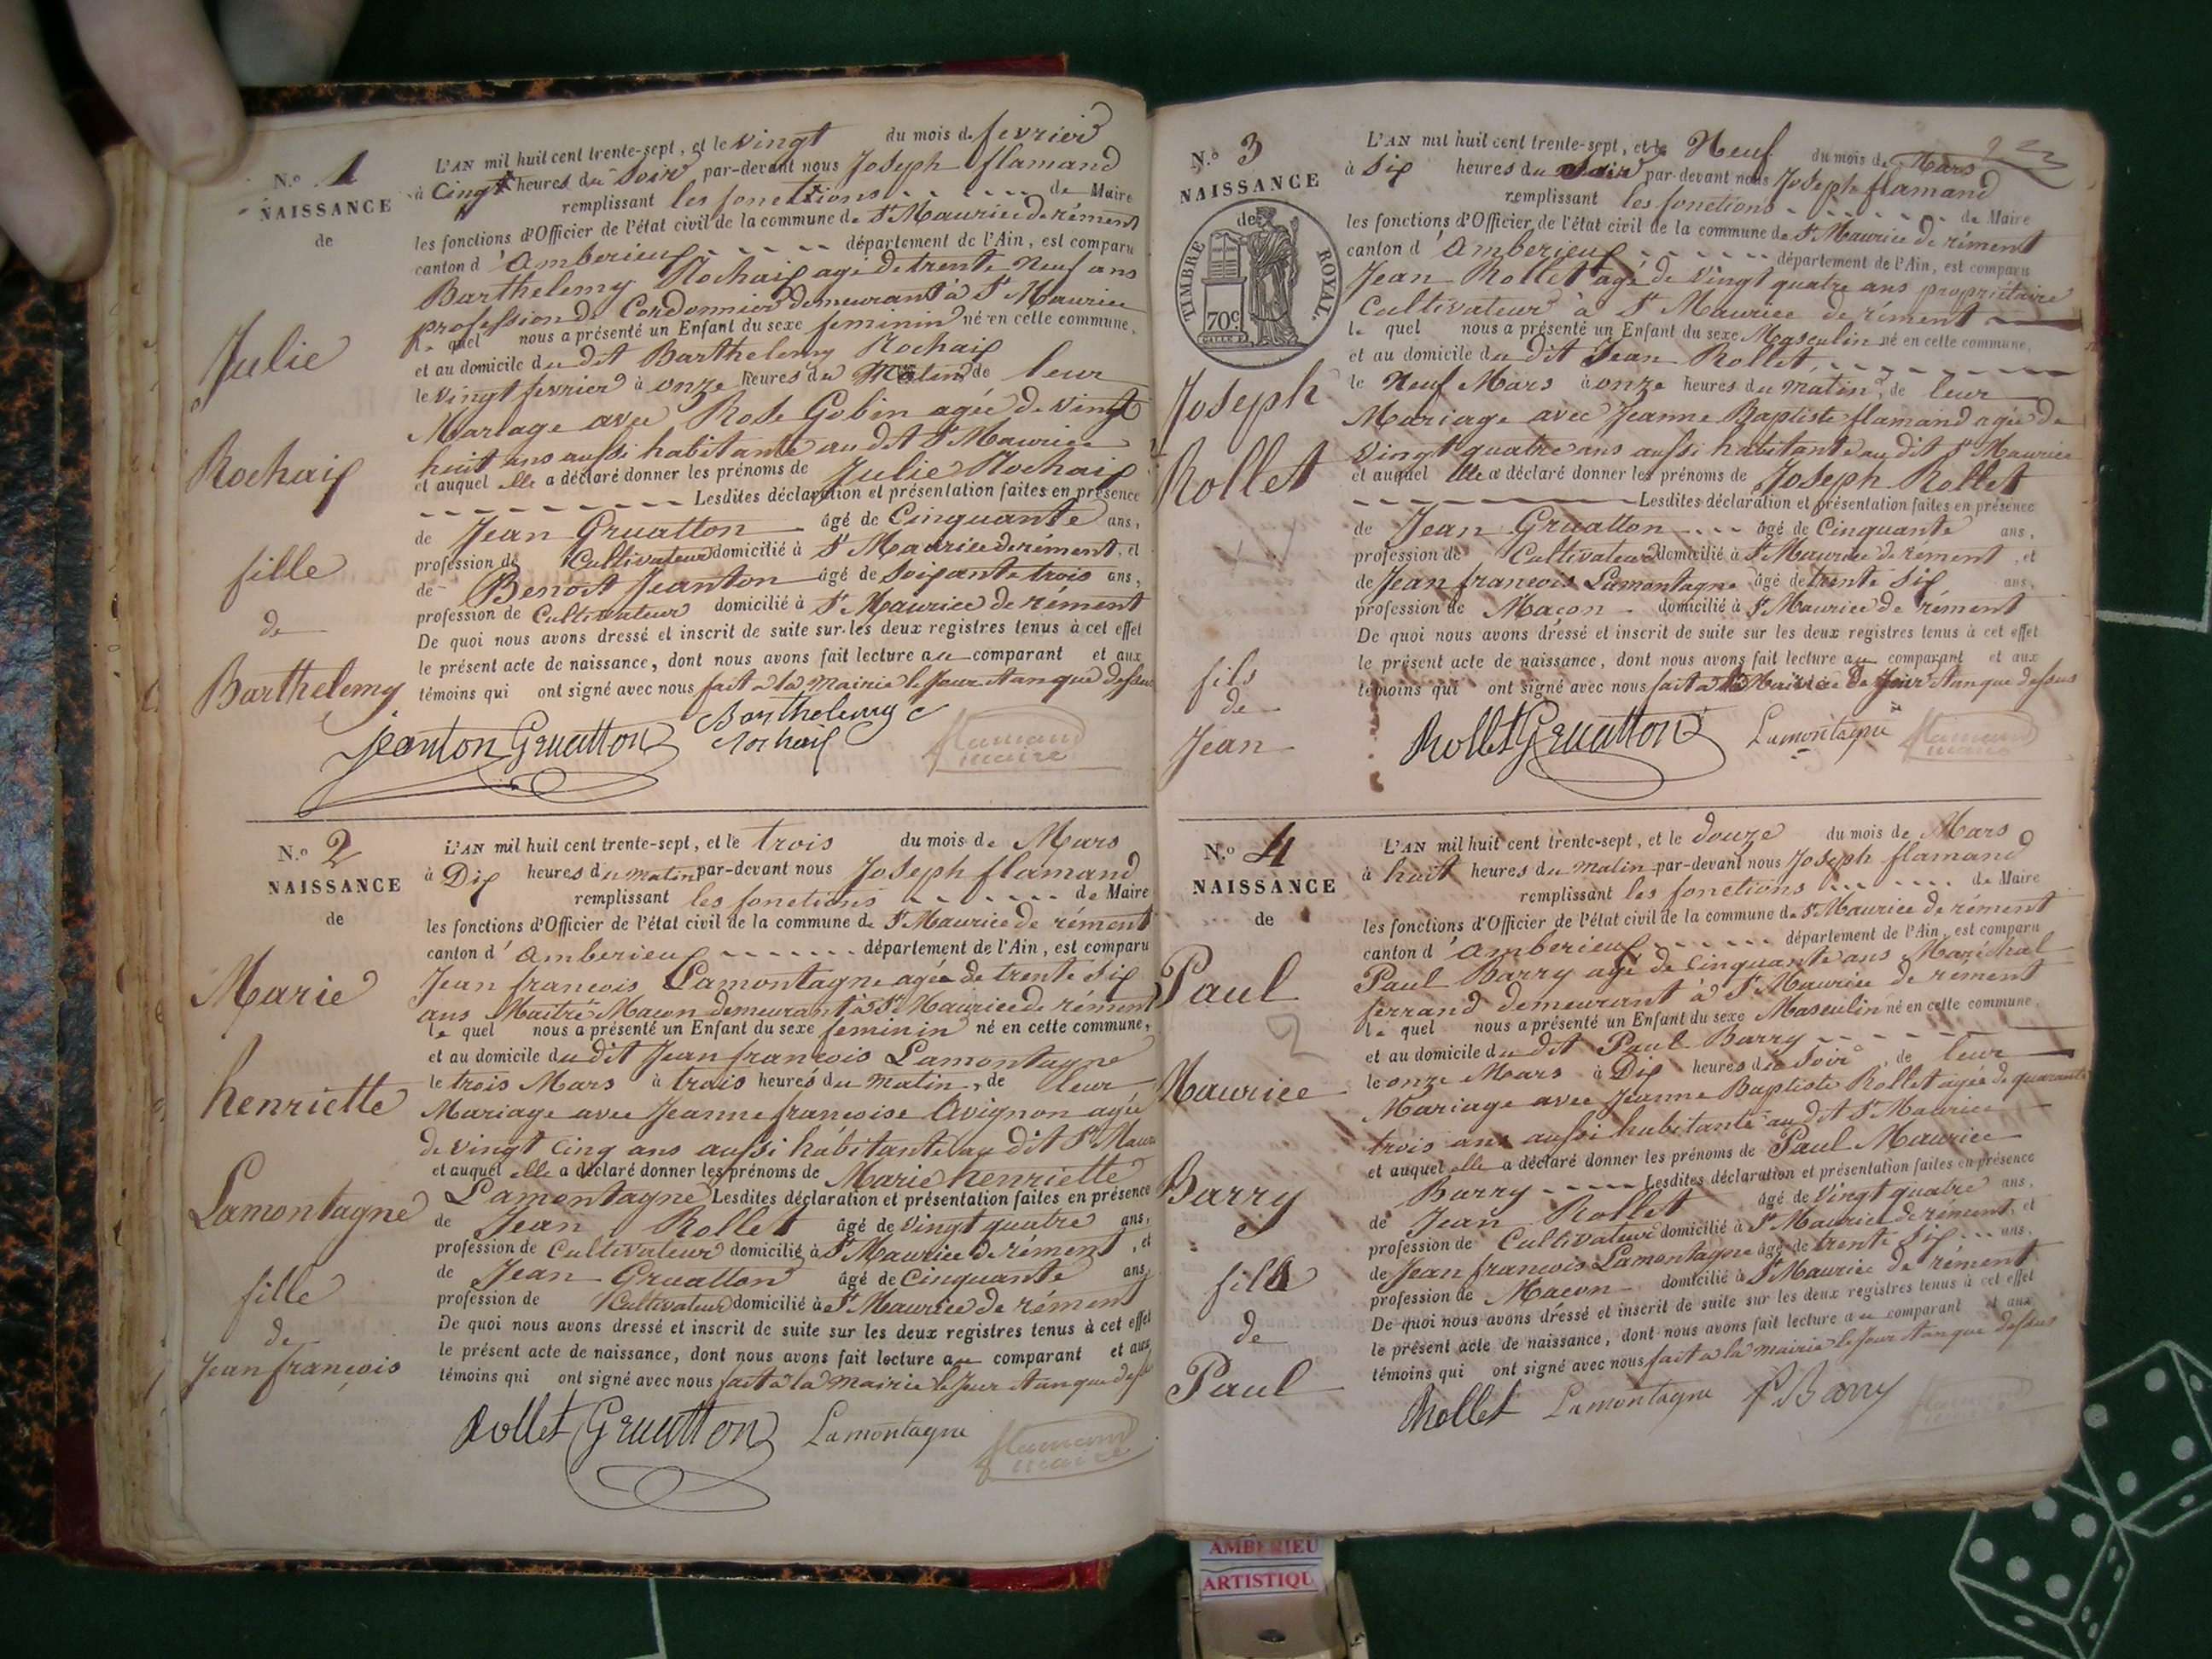 N.o 1
NAISSANCE
de
Julie
Rochaix
fille
de
Barthelemy
L'AN mil huit cent trente-sept, et le vingt du mois de fevrier
à Cinq heures du soir par-devant nous Joseph flamand
remplissant les fonctions de Maire
les fonctions d'Officier de l'état civil de la commune de St Maurice de rément
canton d'Amberieux département de l'Ain, est comparu
Barthelemy Rochaix agé de trente Neuf ans
profession de Cordonnier demeurant à St Maurice
le quel nous a présenté un Enfant du sexe feminin né en cette commune,
et au domicile du dit Barthelemy Rochaix
le vingt fevrier à onze heures du Matin de leur
Mariage avec Rose Gobin agée de vingt
huit ans aussi habitante au dit St Maurice
et auquel elle a déclaré donner les prénoms de Julie Rochaix
Lesdites déclaration et présentation faites en présence
de Jean Gruatton âgé de Cinquante ans,
profession de Cultivateur domicilié à St Maurice de rément, et
de Benoit Jeanton âgé de soixante trois ans,
profession de Cultivateur domicilié à St Maurice de rément
De quoi nous avons dressé et inscrit de suite sur les deux registres tenus à cet effet
le présent acte de naissance, dont nous avons fait lecture au comparant et aux
témoins qui ont signé avec nous fait a la mairie le jour et an que dessus
Jeanton Gruatton Barthelemy Rochaix flamand maire
N.o 2
NAISSANCE
de
Marie
henriette
Lamontagne
fille
de
Jean françois
L'AN mil huit cent trente-sept, et le trois du mois de Mars
à Dix heures du matin par-devant nous Joseph flamand
remplissant les fonctions de Maire
les fonctions d'Officier de l'état civil de la commune de St Maurice de rément
canton d'Amberieux département de l'Ain, est comparu
Jean francois Lamontagne agée de trente six
ans Maitre Macon demeurant à St Maurice de rément
le quel nous a présenté un Enfant du sexe feminin né en cette commune,
et au domicile du dit Jean francois Lamontagne
le trois Mars à trois heures du matin, de leur
Mariage avec Jeanne francoise Avignon agée
de vingt cinq ans aussi habitante au dit St Mau
et auquel elle a déclaré donner les prénoms de Marie henriette
Lamontagne Lesdites déclaration et présentation faites en présence
de Jean Rollet âgé de vingt quatre ans,
profession de Cultivateur domicilié à St Maurice de rément, et
de Jean Gruatton âgé de Cinquante ans,
profession de Cultivateur domicilié à St Maurice de rément
De quoi nous avons dressé et inscrit de suite sur les deux registres tenus à cet effet
le présent acte de naissance, dont nous avons fait lecture au comparant et aux
témoins qui ont signé avec nous fait a la mairie le jour et an que dess
Rollet Gruatton Lamontagne flamand maire
N.o 3
NAISSANCE
de
TIMBRE ROYAL.
70c
Joseph
Rollet
fils
de
Jean
L'AN mil huit cent trente-sept, et le Neuf du mois de Mars
à six heures du soir par-devant nous Joseph flamand
remplissant les fonctions de Maire
les fonctions d'Officier de l'état civil de la commune de St Maurice de rément
canton d'Amberieux département de l'Ain, est comparu
Jean Rollet agé de vingt quatre ans propriétaire
Cultivateur à St Maurice de rément
le quel nous a présenté un Enfant du sexe Masculin né en cette commune,
et au domicile du dit Jean Rollet,
le Neuf Mars à onze heures du matin, de leur
Mariage avec Jeanne Baptiste flamand agée de
vingt quatre ans aussi habitante au dit St Maurice
et auquel elle a déclaré donner les prénoms de Joseph Rollet
Lesdites déclaration et présentation faites en présence
de Jean Gruatton âgé de Cinquante ans,
profession de Cultivateur domicilié à St Maurice de rément, et
de Jean francois Lamontagne âgé de trente six ans,
profession de Macon domicilié à St Maurice de rément
De quoi nous avons dressé et inscrit de suite sur les deux registres tenus à cet effet
le présent acte de naissance, dont nous avons fait lecture au comparant et aux
témoins qui ont signé avec nous fait a la Mairie le jour et an que dessus
Rollet Gruatton Lamontagne flamand maire
N.o 4
NAISSANCE
de
Paul
Maurice
Barry
fils
de
Paul
L'AN mil huit cent trente-sept, et le douze du mois de Mars
à huit heures du matin par-devant nous Joseph flamand
remplissant les fonctions de Maire
les fonctions d'Officier de l'état civil de la commune de St Maurice de rément
canton d'Amberieux département de l'Ain, est comparu
Paul Barry agé de Cinquante ans Maréchal
ferrand demeurant à St Maurice de rément
le quel nous a présenté un Enfant du sexe Masculin né en cette commune,
et au domicile du dit Paul Barry
le onze Mars à Dix heures du soir, de leur
Mariage avec Jeanne Baptiste Rollet agée de quarante
trois ans aussi habitante au dit St Maurice
et auquel elle a déclaré donner les prénoms de Paul Maurice
Barry Lesdites déclaration et présentation faites en présence
de Jean Rollet âgé de vingt quatre ans,
profession de Cultivateur domicilié à St Maurice de rément, et
de Jean francois Lamontagne âgé de trente six ans,
profession de Macon domicilié à St Maurice de rément
De quoi nous avons dressé et inscrit de suite sur les deux registres tenus à cet effet
le présent acte de naissance, dont nous avons fait lecture au comparant et aux
témoins qui ont signé avec nous fait a la mairie le jour et an que dessus
Rollet Lamontagne P Barry
AMBERIEU
ARTISTIQU